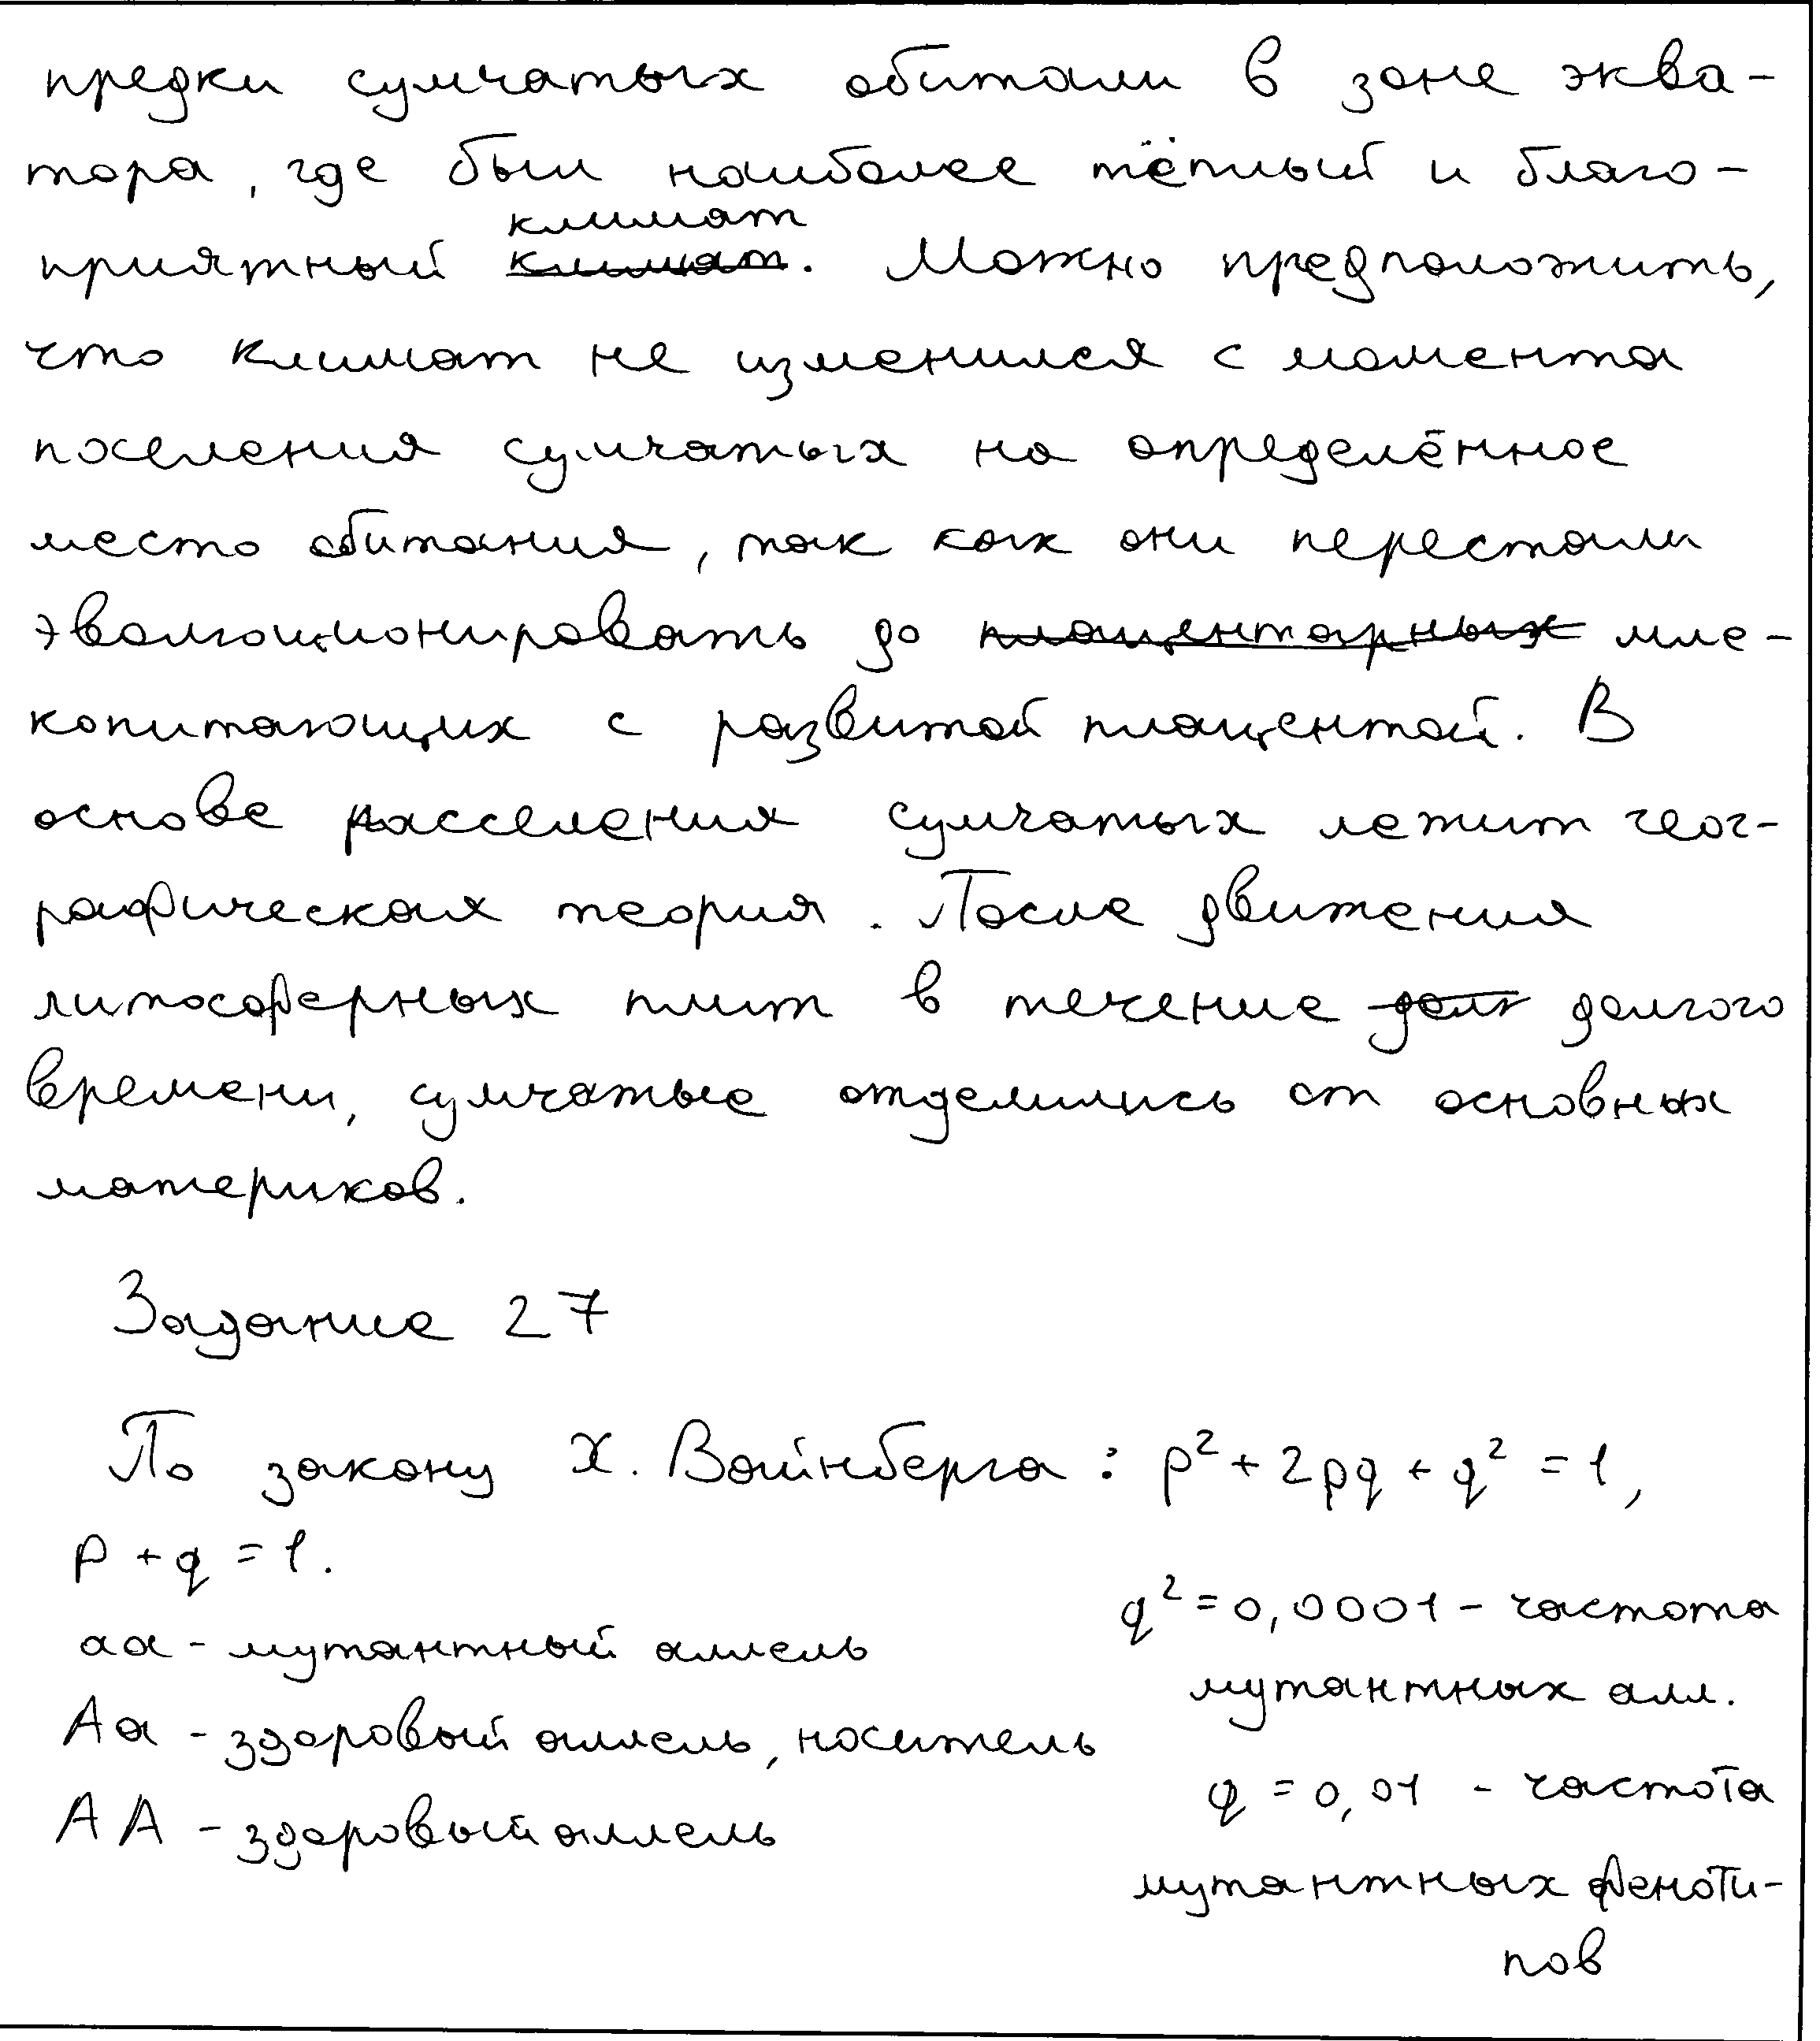 предки сумчатых обитали в зоне эква-
тора, где был наиболее тёплый и благо-
климат
приятный климат. Можно предположить,
что климат не изменился с момента
поселения сумчатых на определённое
место обитания, так как они перестали
эволюционировать до плацентарных мле-
копитающих с развитой плацентой. В
основе расселения сумчатых лежит геог-
рафическая теория. После движения
литосферных плит в течение долг долгого
времени, сумчатые отделились от основных
материков.
Задание 27
По закону Х. Вайнберга : p² + 2pq + q² = 1,
p + q = 1.
аа - мутантный аллель
Аа - здоровый аллель, носитель
АА - здоровый аллель
q² = 0,0001 - частота
мутантных алл.
q = 0,01 - частота
мутантных феноти-
пов